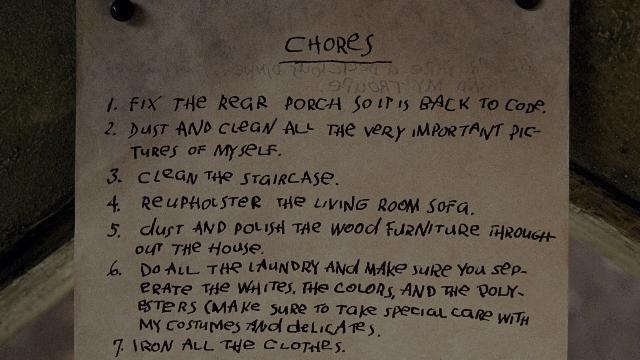 CHORES
1. FIX THE REAR PORCH SO IT IS BACK TO CODE.
2. DUST AND CLEAN ALL THE VERY IMPORTANT PIC-
TURES OF MYSELF.
3. CLEAN THE STAIRCASE.
4. REUPHOLSTER THE LIVING ROOM SOFA.
5. DUST AND POLISH THE WOOD FURNITURE THROUGH-
OUT THE HOUSE.
6. DO ALL THE LAUNDRY AND MAKE SURE YOU SEP-
ERATE THE WHITES, THE COLORS, AND THE POLY-
ESTERS (MAKE SURE TO TAKE SPECIAL CARE WITH
MY COSTUMES AND DELICATES.
7. IRON ALL THE CLOTHES.